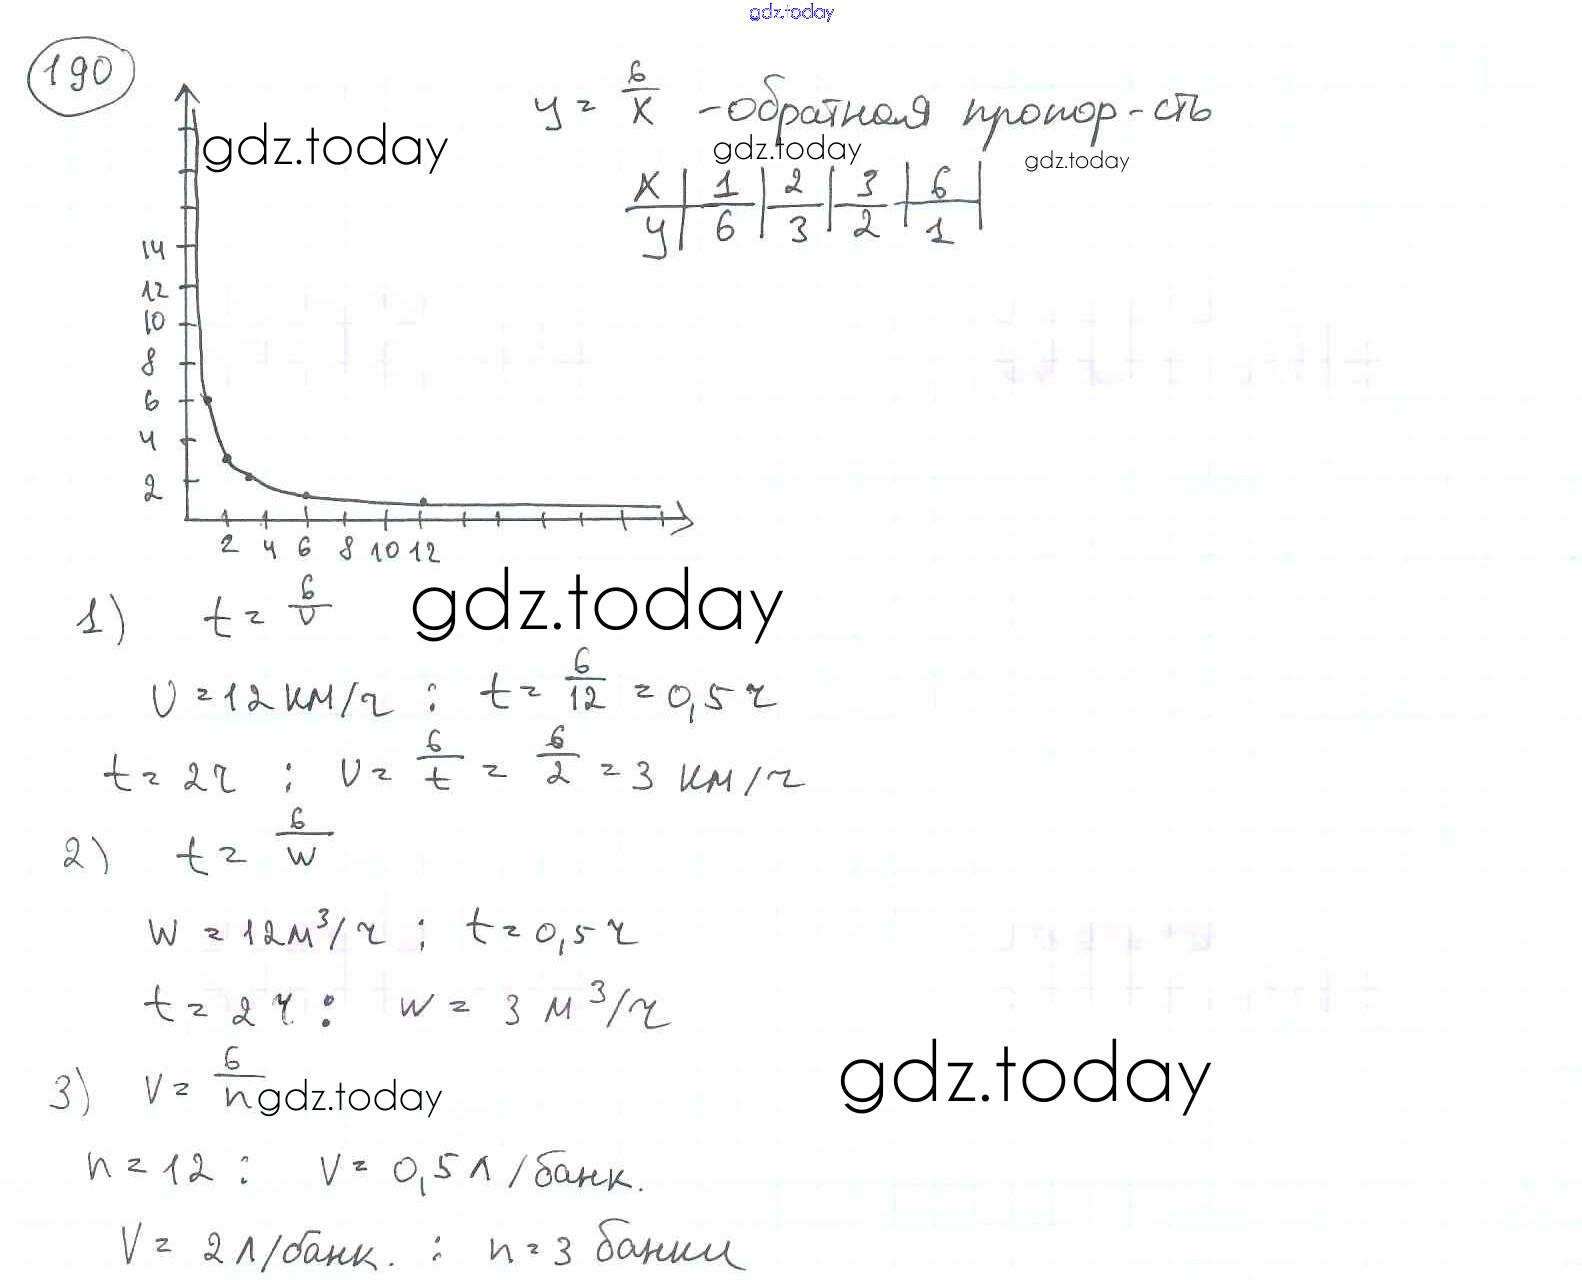 gdz.today
190
y = 6/x - обратная пропор-сть
gdz.today gdz.today gdz.today
x | 1 | 2 | 3 | 6 |
y | 6 | 3 | 2 | 1 |
14
12
10
8
6
4
2
2 4 6 8 10 12
1) t = 6/v gdz.today
v = 12 км/ч : t = 6/12 = 0,5 ч
t = 2ч : v = 6/t = 6/2 = 3 км/ч
2) t = 6/w
w = 12м³/ч : t = 0,5 ч
t = 2 ч : w = 3 м³/ч
3) V = 6/n gdz.today gdz.today
n = 12 : V = 0,5 л/банк.
V = 2 л/банк. : n = 3 банки